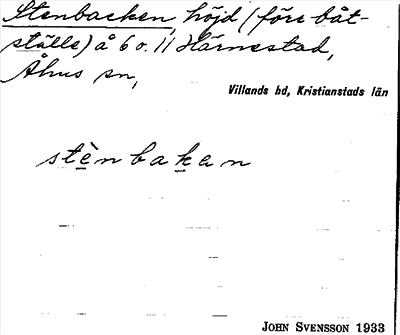 Stenbacken, höjd (förr båt-
ställe) å 6 o. 11 Härnestad,
Åhus sn,
Villands hd, Kristianstads län
stènbaken
JOHN SVENSSON 1933